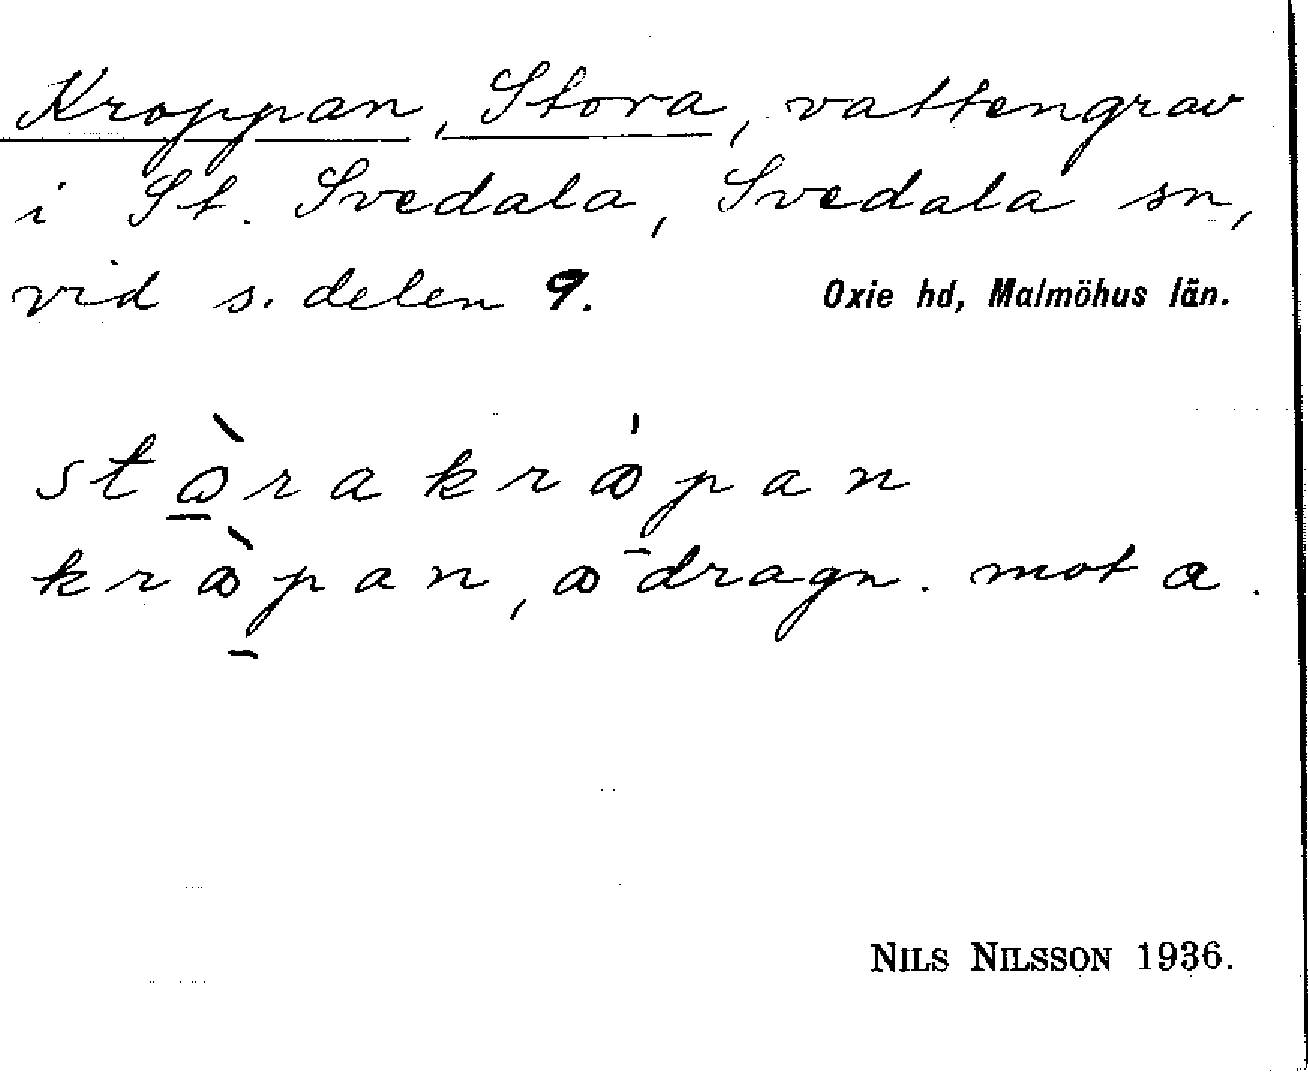 Kroppan, Stora, vattengrav
i St. Svedala, Svedala sn,
vid s. delen 9. Oxie hd, Malmöhus län.
stꭂ̀ra krꭂ́pan
krꭂ̀pan, ꭂ dragn. mot a.
NILS NILSSON 1936.